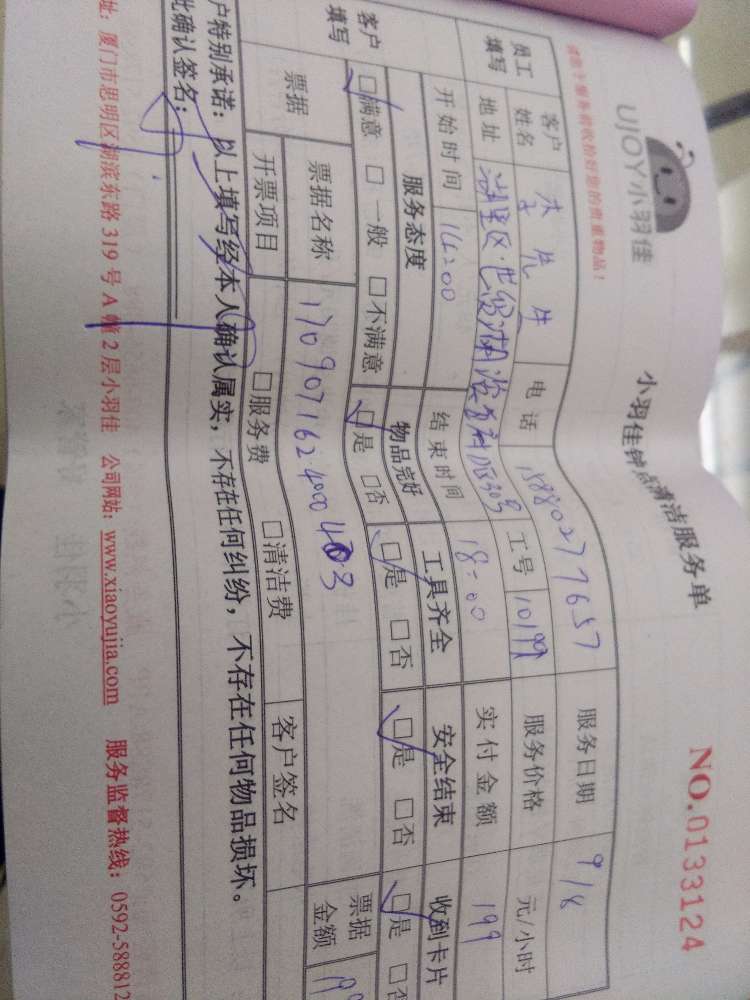 UJOY小羽佳
小羽佳钟点清洁服务单
NO.0133124
请您于服务前收拾好您的贵重物品!
员工填写 客户姓名 先生 电话 服务日期 9/8
地址 湖里区 工号 服务价格 元/小时
开始时间 14:00 结束时间 18:00 实付金额 199
客户填写 服务态度 物品完好 工具齐全 安全结束 收到卡片
□满意 □一般 □不满意 □是 □否 □是 □否 □是 □否 □是 □否
票据 票据名称 票据金额
开票项目 □服务费 □清洁费 客户签名
户特别承诺:以上填写经本人确认属实,不存在任何纠纷,不存在任何物品损坏。
此确认签名:
址:厦门市思明区湖滨东路 319 号 A 幢 2 层小羽佳 公司网站:www.xiaoyujia.com 服务监督热线:0592-588812